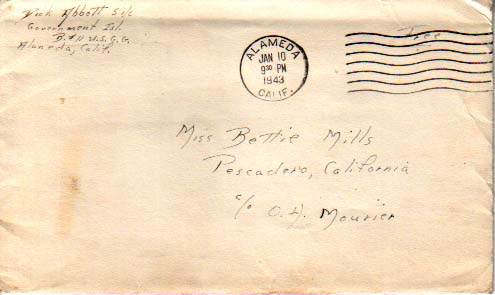 Dick Abbott S1/c
Government Isl.
B. 4 U.S.C.G.
Alameda, Calif.
Free
ALAMEDA
JAN 10
9 30 PM
1943
CALIF.
Miss Bettie Mills
Pescadero, California
c/o O.H. Mourier